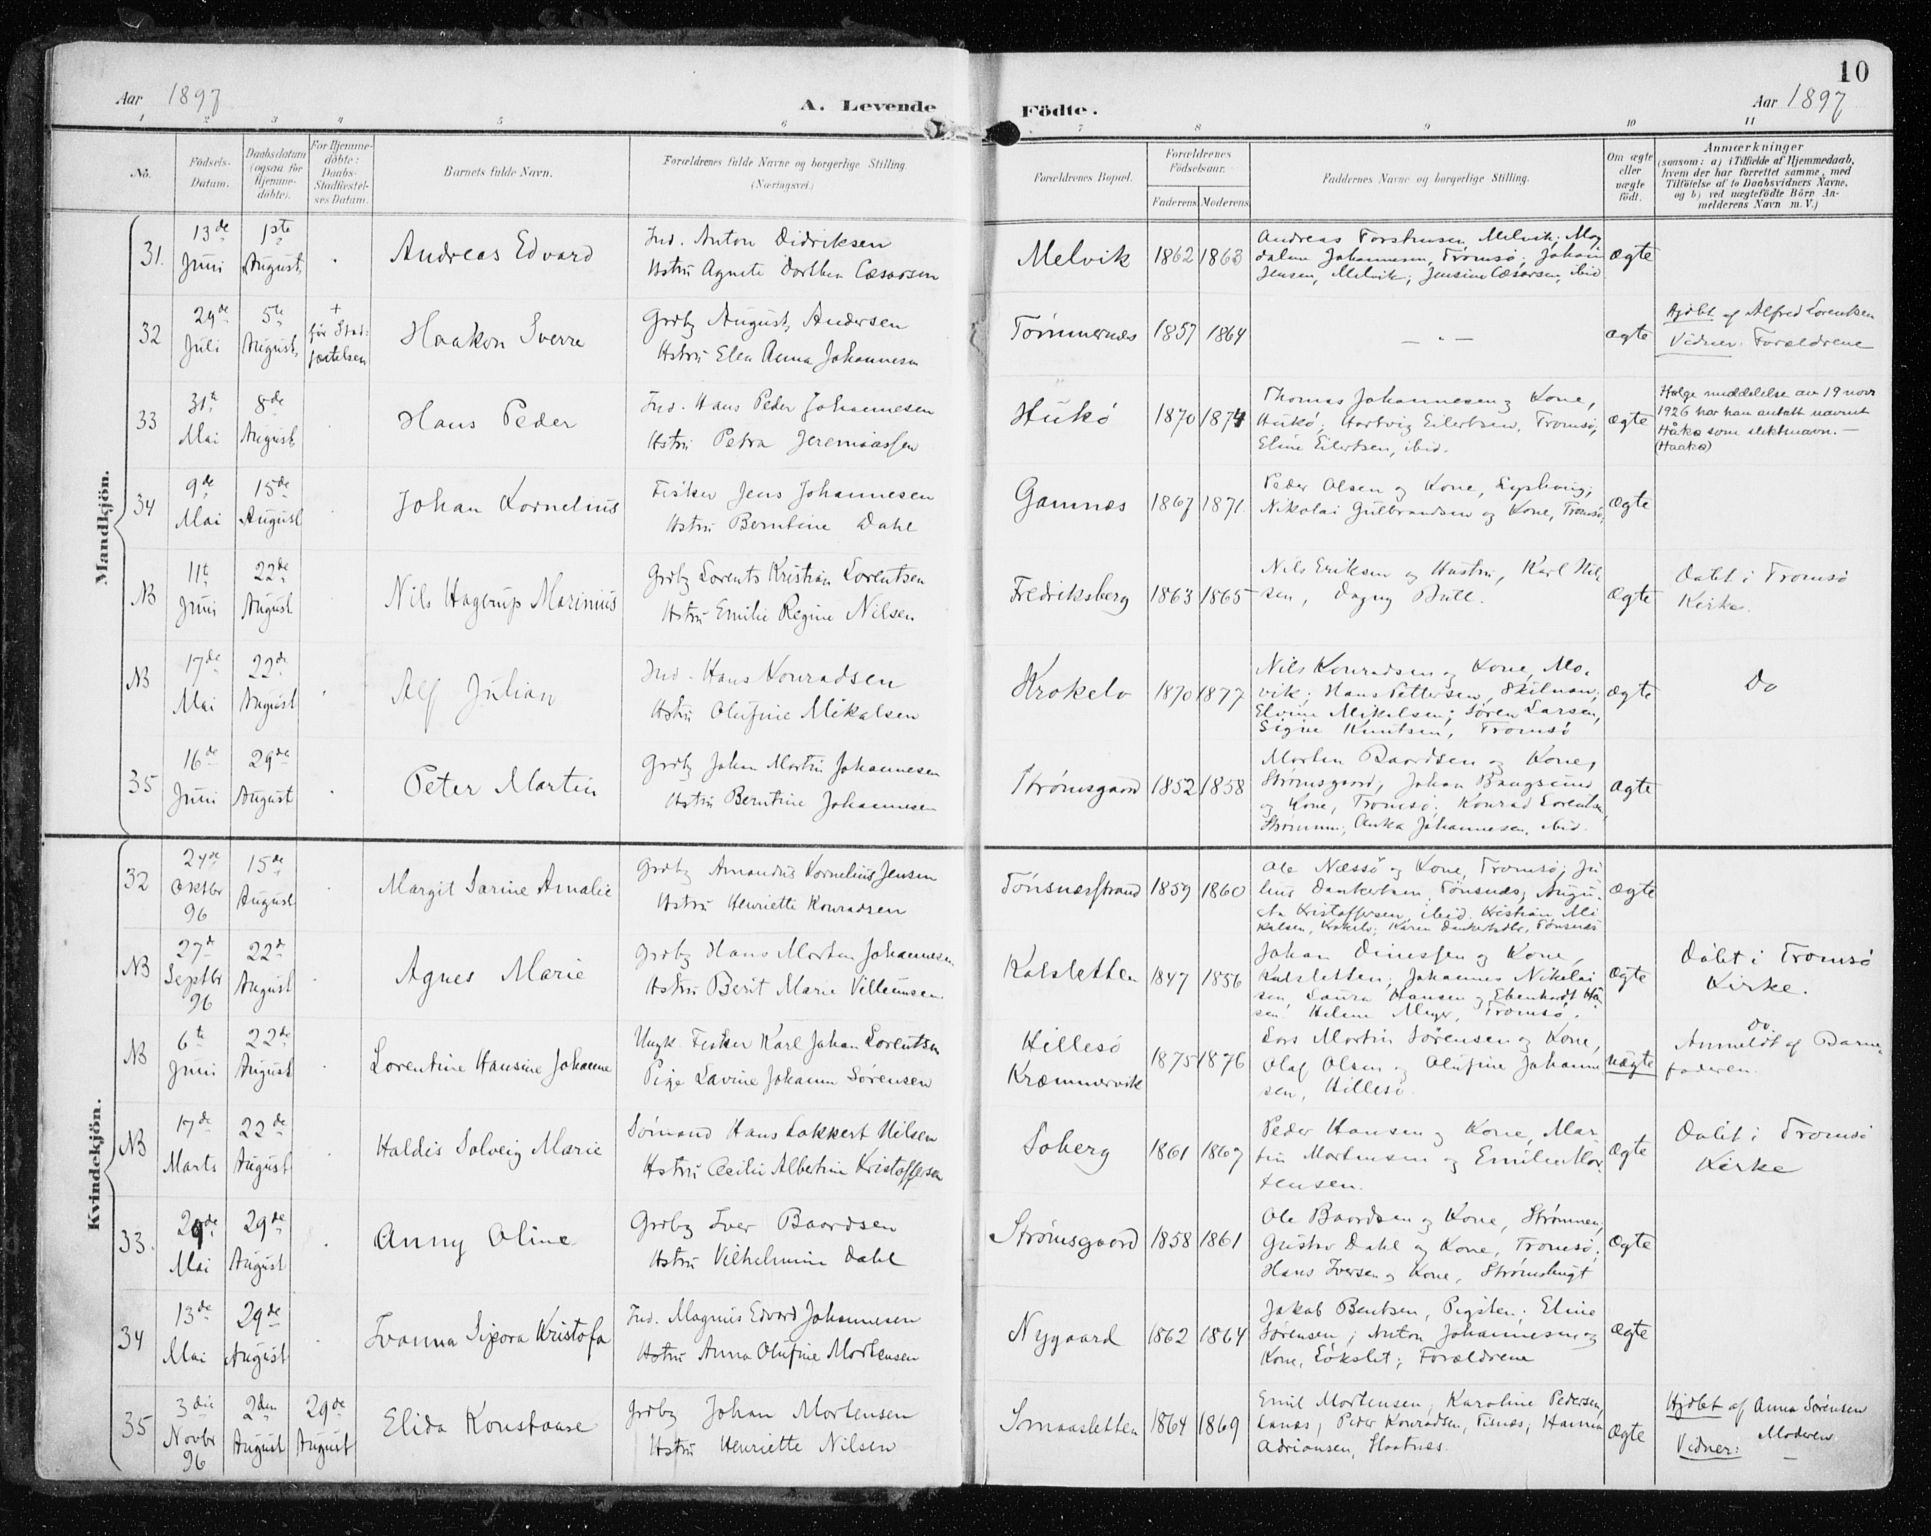 10
Aar 1897
A. Levende
Födte.
Aar 1897
1 2 3 4 5 6 7 8 9 10 11
No.
Födsels-
Datum.
Daabsdatum
(ogsaa for
Hjemme-
döbte).
For Hjemme-
döbte:
Daabs-
Stadfæstel-
ses Datum.
Barnets fulde Navn.
Forældrenes fulde Navne og borgerlige Stilling.
(Næringsvei.)
Forældrenes Bopæl.
Forældrenes
Födselsaar.
Faderens Moderens
Faddernes Navne og borgerlige Stilling.
Om ægte
eller
uægte
födt.
Anmærkninger
(saasom: a) i Tilfælde af Hjemmedaab,
hvem der har forrettet samme, med
Tilföielse af to Daabsvidners Navne,
og b) ved uægtefödte Börn An-
melderens Navn m. V.)
Mandkjön.
31. 13de Juni 1ste August
Andreas Edvard
Ind. Anton Didriksen
Hstru Agnete Dorthea Cæsarsen
Melvik 1862 1863
Andreas Forstrusen, Melvik; Mag
dalena Johannesen, Tromsö; Johan
Jensen, Melvik; Jensine Cæsarsen, ibid
ægte
32 29de Juli 5te August
+
før Stad-
fæstelsen
Haakon Sverre
Grdbr August Andersen
Hstru Elen Anna Johannesen
Tømmernes 1857 1864
— " —
ægte
Hjdbt af Alfred Lorentsen
Vidner: Forældrene
33 31te Mai 8de August
Hans Peder
Ind. Hans Peder Johannesen
Hstru Petra Jeremiassen
Hukö 1870 1874
Thomas Johannesen og Kone,
Hukö; Hartvig Eilertsen, Tromsö;
Eline Eilertsen, ibid.
ægte
Ifølge meddelelse av 19 novr
1926 har han antatt navnet
Håkø som slektsnavn. —
(Haakø)
34 9de Mai 15de August
Johan Kornelius
Fisker Jens Johannesen
Hstru Berntine Dahl
Gamnes 1867 1871
Peder Olsen og Kone,
Nikolai Gulbrandsen og Kone, Tromsö,
ægte
NB 11te Juni 22de August
Nils Hagerup Marinius
Grdbr Lorents Kristian Lorentsen
Hstru Emilie Regine Nilsen
Fredriksberg 1863 1865
Nils Eriksen og Hustru, Karl Nil
sen, Dagny Bull.
ægte
Døbt i Tromsø
Kirke.
NB 17de Mai 22de August
Alf Julian
Ind. Hans Konradsen
Hstru Olufine Mikalsen
Krokelv 1870 1877
Nils Konradsen og Kone, Mo-
vik; Hans Pettersen, Skilman;
Elvine Mikelsen; Søren Larsen,
Signe Knutsen, Tromsö
ægte
Do
35 16de Juni 29de August
Peter Martin
Grdbr Johan Martin Johannesen
Hstru Berntine Johannesen
Strømsgaard 1852 1858
Morten Baardsen og Kone,
Strømsgaard; Johan Bangsund
og Kone, Tromsö; Konrad Lorentsen,
Strømmen; Anka Johannesen, ibid.
ægte
Kvindekjön.
32 24de Oktbr 96 15de August
Margit Sarine Amalie
Grdbr Amandus Kornelius Jensen
Hstru Henriette Konradsen
Tönsnesstrand 1859 1860
Ole Næssö og Kone, Tromsö; Ju
lius Dankertsen, Tönsnes; Augu-
sta Kristoffersen, ibid. Kristian Mi
kalsen, Krokelv; Karen Dankertsen, Tönsnes
ægte
NB 27de Septbr 96 22de August
Agnes Marie
Grdbr Hans Morten Johannesen
Hstru Berit Marie Villumsen
Kalsletten 1847 1856
Johan Dinessen og Kone,
Kalsletten; Johannes Nikolai
sen, Laura Hansen og Ebenhardt Han
sen. Helene Meyer, Tromsö.
ægte
Døbt i Tromsö
Kirke.
NB 6te Juni 22de August
Lorentine Hansine Johanne
Ungk. Fisker Karl Johan Lorentsen
Pige Lavine Johanne Sørensen
Hillesö
Kræmmervik 1875 1876
Lars Martin Sørensen og Kone,
Olaf Olsen og Olufine Johanne
sen, Hillesö.
uægte
do
Anmeldt af Barne-
faderen.
NB 17de Marts 22de August
Haldis Solveig Marie
Sømand Hans Lakkert Nilsen
Hstru Cecilie Albertine Kristoffersen
Soberg 1861 1867
Peder Hansen og Kone, Mar
tin Mortensen og Emilie Mor
tensen.
ægte
Døbt i Tromsö
Kirke
33. 29de Mai 29de August
Anny Oline
Grdbr Iver Baardsen
Hstru Vilhelmine Dahl
Strømsgaard 1858 1861
Ole Baardsen og Kone, Strømmen,
Gustav Dahl og Kone, Tromsö;
Hans Iversen og Kone, Strømsbugt
ægte
34 13de Mai 29de August
Ivanna Sipora Kristofa
Ind. Magnus Edvard Johannesen
Hstru Anna Olufine Mortensen
Nygaard 1862 1864
Jakob Bentsen, Pigsten; Eline
Sørensen; Anton Johannesen og
Kone, Lökslet; Forældrene
ægte
35 3die Novbr 96 2den August 29de August
Elida Konstanse
Grdbr Johan Mortensen
Hstru Henriette Nilsen
Smaasletten 1864 1869
Emil Mortensen, Karoline Pedersen,
Lanes; Peder Konradsen, Tisnes; Hanna
Adriansen, Slaatnes.
ægte
Hjdbt af Anna Sørensen
Vidner: Moderen